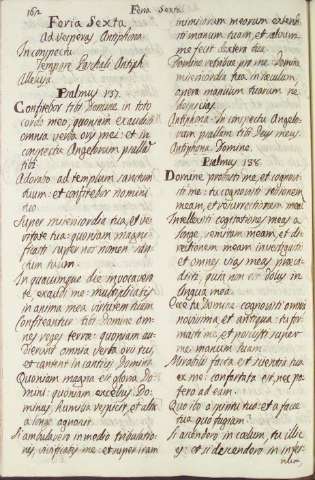 162
Feria Sexta
Feria Sexta
Ad vesperas Antiphona
In conspectu
Tempore Paschali Antiph.
Alleluya
Psalmus 137.
Confitebor tibi Domine in toto
corde meo: quoniam exaudisti
omnia verba oris mei: et in
conspectu Angelorum psallam
tibi
Adorabo ad templum sanctum
tuum: et confitebor nomini
tuo
Super misericordia tua, et ve
ritate tua: quoniam magni-
ficasti super nos nomen san
ctum tuum.
In quacumque die invocavero
te, exaudi me: multiplicabis
in anima mea virtutem tuam
Confiteantur tibi Domine om
nes reges terræ: quoniam au
dierunt omnia verba oris tui,
et cantent in cantis Domini
Quoniam magna est gloria Do
mini: quoniam excelsus Do-
minus, humilia respicit, et alta
a longe agnoscit.
Si ambulavero in medio tribulatio
nis, vivificabis me: et super iram
inimicorum meorum extendi
sti manum tuam, et salvum
me fecit dextera tua.
Domine retribue pro me: Domine
misericordia tua in sæculum,
opera manuum tuarum ne
despicias.
Antiphona. In conspectu Angelo-
rum psallam tibi Deus meus.
Antiphona. Domine.
Psalmus 138.
Domine probasti me, et cognovi
sti me: tu cognovisti sessionem
meam, et resurrectionem meam
Intellexisti cogitationes meas a
longe, semitam meam, et di
rectionem meam investigasti
et omnes vias meas prævi
disti, quia non est dolus in
lingua mea.
Ecce tu Domine cognovisti omnia
novissima et antiqua: tu for
masti me, et posuisti super
me manum tuam.
Mirabilis facta est scientia tua
ex me: confortata est, nec po
tero ad eam.
Quo ibo a spiritu tuo: et a facie
tua quo fugiam?
Si ascendero in cœlum, tu illic
es: et si descendero in infer-